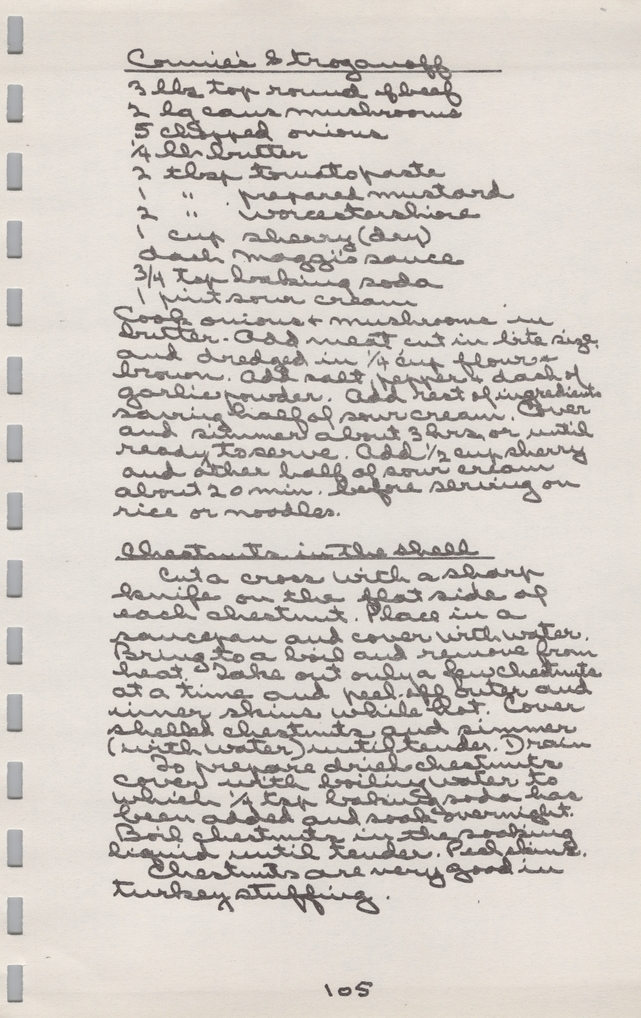 Connie's Stroganoff
3 lbs top round of beef
2 lg cans mushrooms
5 chopped onions
1/4 lb butter
2 tbsp tomato paste
1 " prepared mustard
2 " Worcestershire
1 cup sherry (dry)
dash Maggi's sauce
3/4 tsp baking soda
1 pint sour cream
Cook onions + mushrooms in
butter. Add meat cut in bite size,
and dredged in 1/4 cup flour +
brown. Add salt, pepper + dash of
garlic powder. Add rest of ingredients
saving half of sour cream. Cover
and simmer about 3 hrs, or until
ready to serve. Add 1/2 cup sherry
and other half of sour cream
about 20 min. before serving on
rice or noodles.
Chestnuts in the shell
Cut a cross with a sharp
knife on the flat side of
each chestnut. Place in a
saucepan and cover with water.
Bring to a boil and remove from
heat. Take out only a few chestnuts
at a time and peel off outer and
inner skins while hot. Cover
shelled chestnuts and simmer
(with water) until tender. Drain
To prepare dried chestnuts
cover with boiling water to
which 1/4 tsp baking soda has
been added and soak overnight.
Boil chestnuts in the soaking
liquid until tender. Peel skins.
Chestnuts are very good in
turkey stuffing.
105